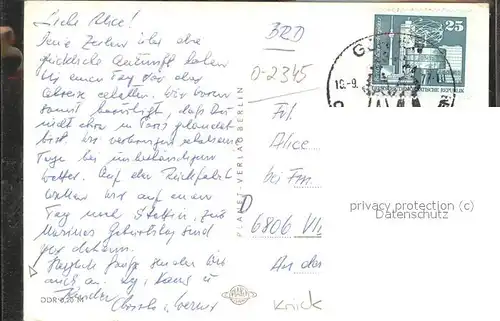 Liebe Alice!
Deine Zeilen über die
glückliche Ankunft haben
wir einen Tag vor der
Abreise erhalten. Wir waren
somit beruhigt, daß Du
nicht etwa in Paris gelandet
bist. Wir verbringen schöne
Tage bei unbeständigem
Wetter. Auf der Rückfahrt
wollen wir auf einen
Tag nach Stettin, zu
Geburtstag sind
wir daheim.
Herzliche Grüße senden Wir
auch an
Kinder
Werner
DDR 0,20 M
PLANET-VERLAG BERLIN
PLANET
BRD
0-2345
25
DEUTSCHE DEMOKRATISCHE REPUBLIK
19.-9.
Frl.
Alice
bei Fm
D
6806 VII
An der
Knick
privacy protection (c)
Datenschutz